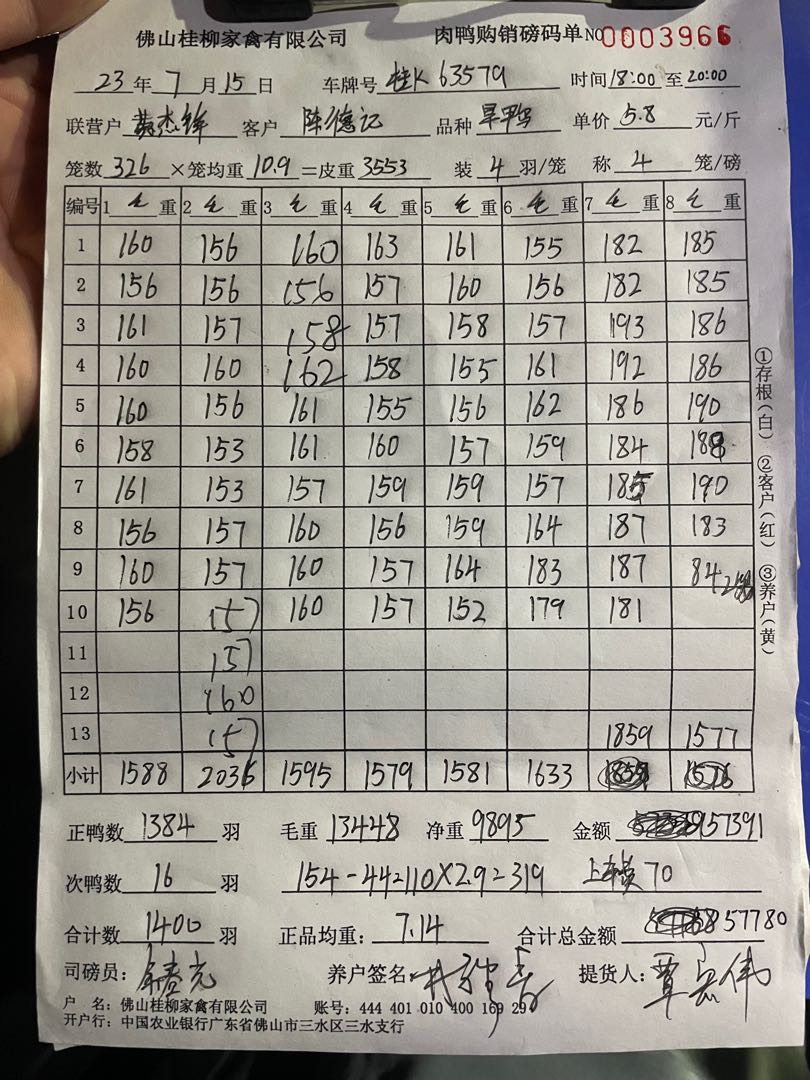 佛山桂柳家禽有限公司 肉鸭购销磅码单 NO 0003966
23 年 7 月 15 日 车牌号 桂K 63579 时间 18:00 至 20:00
联营户 黄杰锋 客户 陈德记 品种 旱鸭 单价 5.8 元/斤
笼数 326 ×笼均重 10.9 =皮重 3553 装 4 羽/笼 称 4 笼/磅
编号 1 毛 重 2 毛 重 3 毛 重 4 毛 重 5 毛 重 6 毛 重 7 毛 重 8 毛 重
1 160 156 160 163 161 155 182 185
2 156 156 156 157 160 156 182 185
3 161 157 158 157 158 157 193 186
4 160 160 162 158 155 161 192 186
5 160 156 161 155 156 162 186 190
6 158 153 161 160 157 159 184 188
7 161 153 157 159 159 157 185 190
8 156 157 160 156 159 164 187 183
9 160 157 160 157 164 183 187 84
10 156 157 160 157 152 179 181
11 157
12 160
13 157 1859 1577
小计 1588 2036 1595 1579 1581 1633
正鸭数 1384 羽 毛重 13448 净重 9895 金额 57391
次鸭数 16 羽 154-44=110×2.9=319 上车费 70
合计数 1400 羽 正品均重: 7.14 合计总金额 57780
司磅员: 养户签名 提货人: 覃
户 名: 佛山桂柳家禽有限公司 账号: 444 401 010 400 169 29
开户行: 中国农业银行广东省佛山市三水区三水支行
①存根(白) ②客户(红) ③养户(黄)